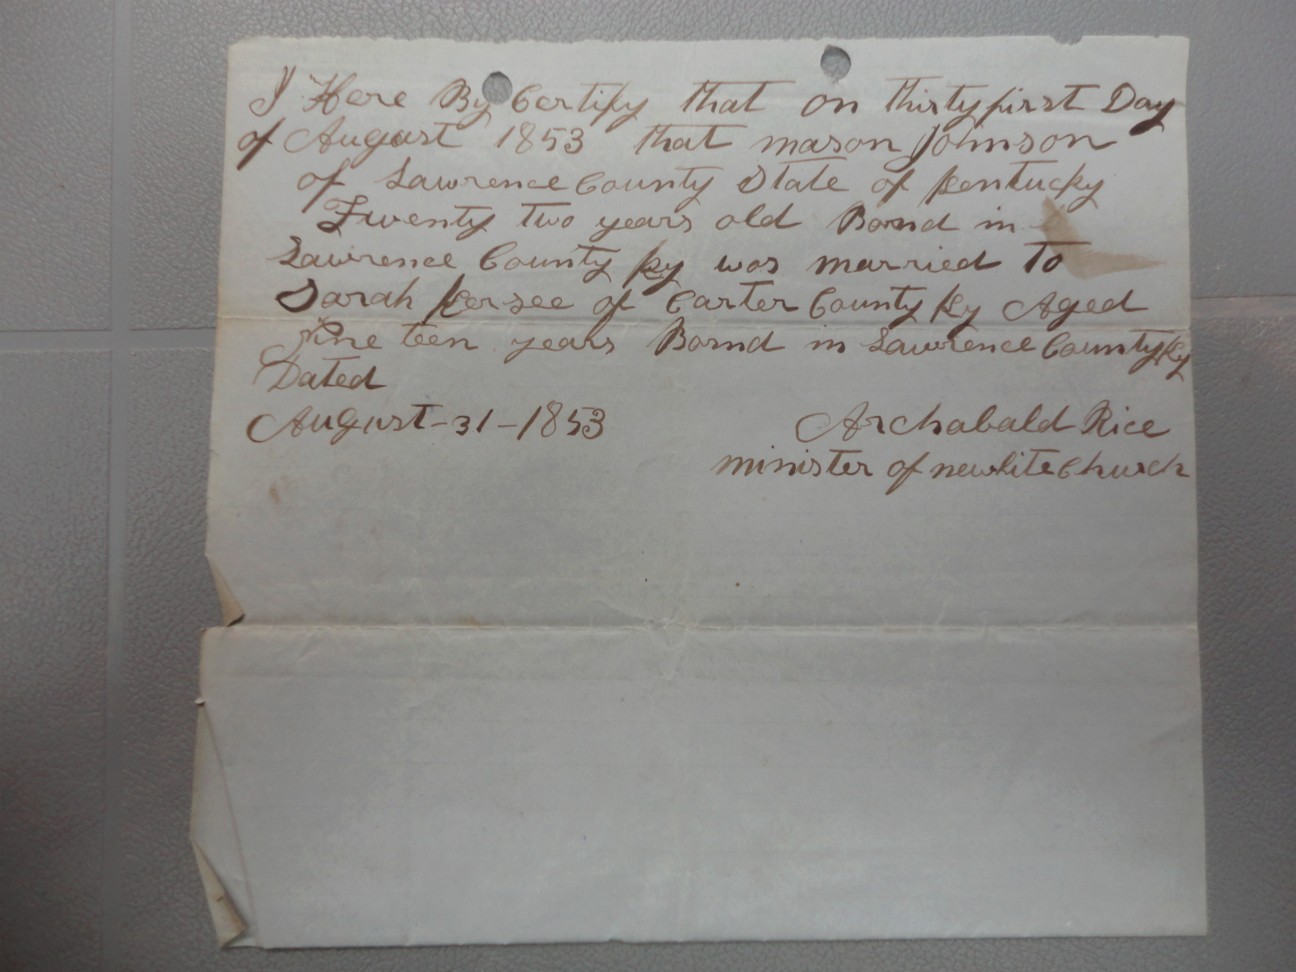 I Here By Certify that on thirtyfirst Day
of August 1853 that mason Johnson
of Lawrence County State of kentucky
Twenty two years old Bornd in
Lawrence County ky was married to
Sarah kersee of Carter County ky Aged
Nine teen years Bornd in Lawrence County ky
Dated
August-31-1853 Archabald Rice
minister of newlite Church